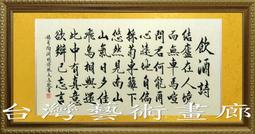 飲酒詩
結廬在人境
而無車馬喧
問君何能爾
心遠地自偏
採菊東籬下
悠然見南山
山氣日夕佳
飛鳥相與還
此中有真意
欲辯已忘言
台灣藝術畫廊